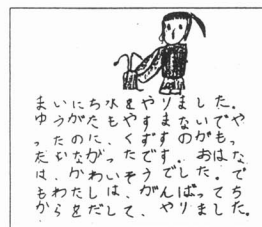 まいにち水をやりました。
ゆうがたもやすまないでや
ったのに、くずすのがもっ
たいなかったです。おはな
は、かわいそうでした。で
もわたしは、がんばってち
からをだして、やりました。